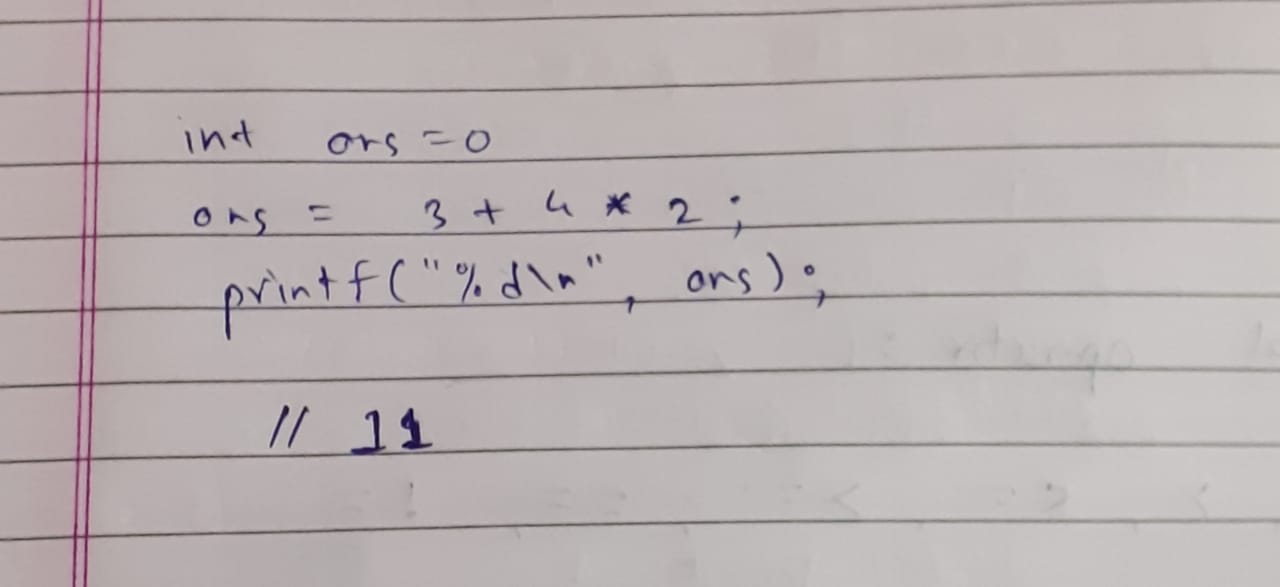 int ans = 0
ans = 3 + 4 * 2 ;
printf("%d\n", ans);
// 11